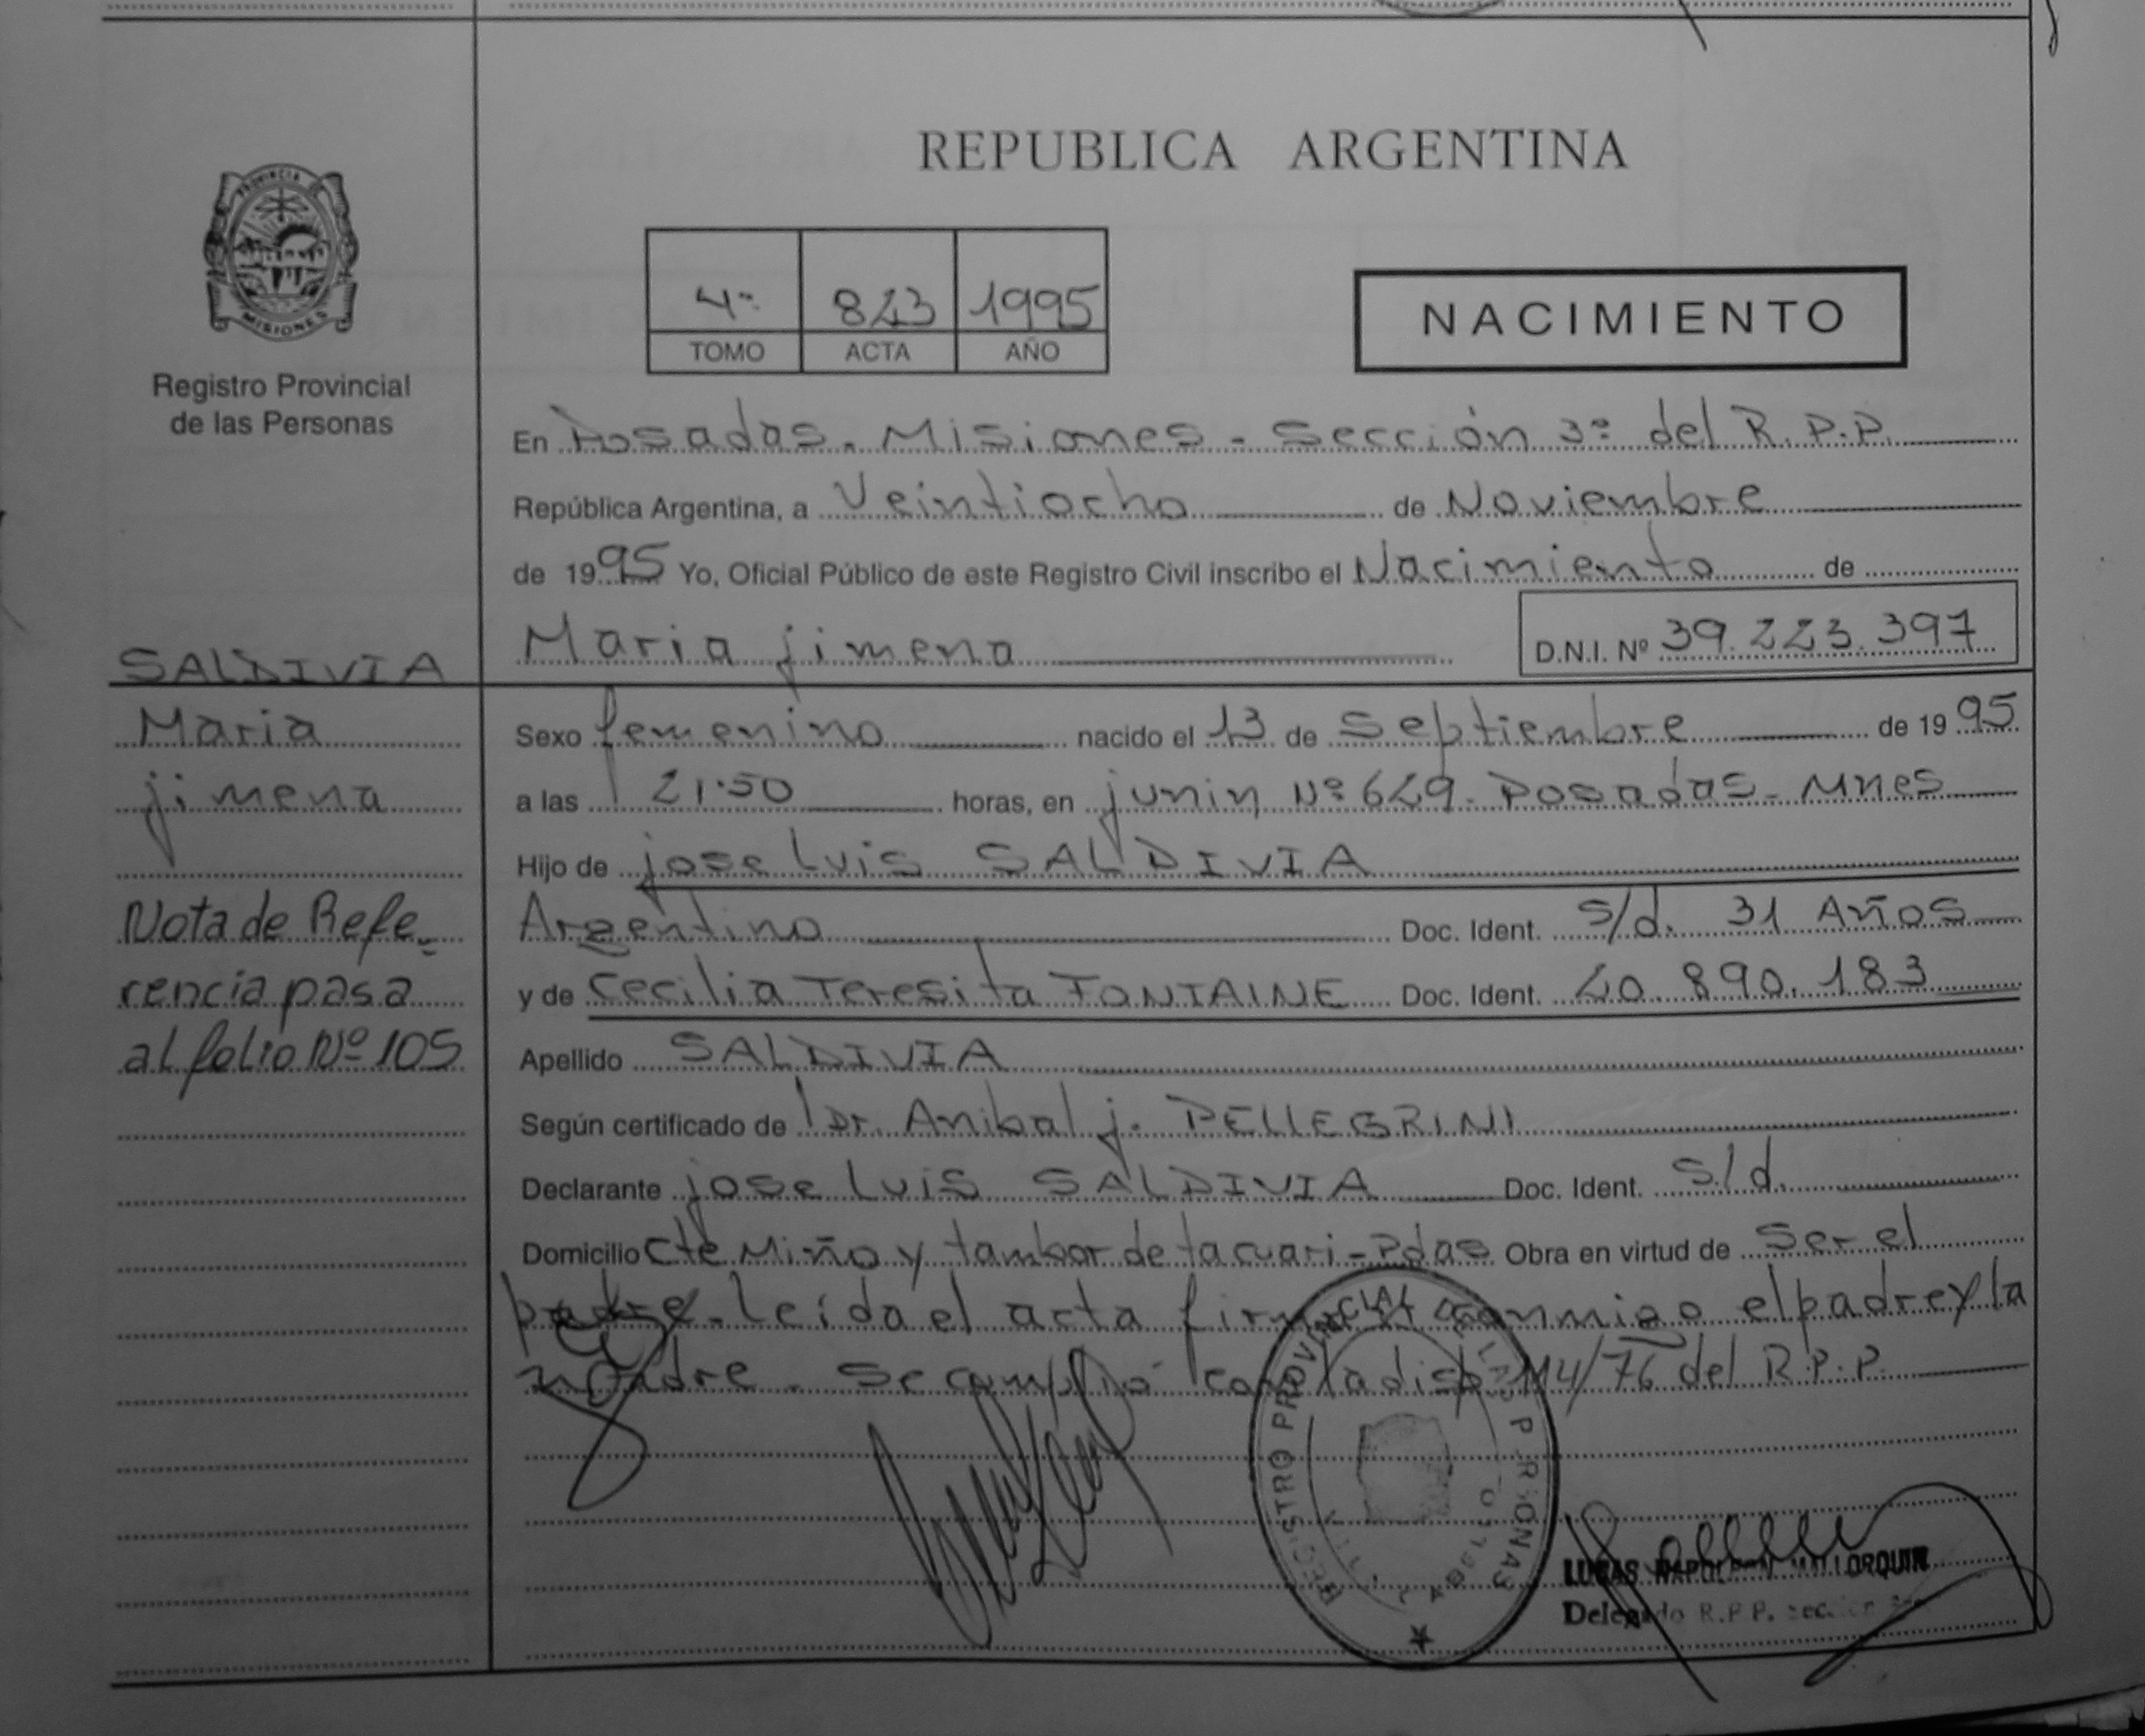 PROVINCIA DE
MISIONES
Registro Provincial
de las Personas
REPUBLICA ARGENTINA
4º 823 1995
TOMO ACTA AÑO
NACIMIENTO
En Posadas - Misiones - Sección 3º del R.P.P.
República Argentina, a Veintiocho de Noviembre
de 1995 Yo, Oficial Público de este Registro Civil inscribo el Nacimiento de
Maria jimena D.N.I. Nº 39.223.397
SALDIVIA
Maria
jimena
Nota de Refe-
rencia pasa
al folio Nº 105
Sexo femenino nacido el 13 de Septiembre de 1995
a las 21.50 horas, en junin Nº 629 - Posadas - Mnes
Hijo de jose Luis SALDIVIA
Argentino Doc. Ident. s/d. 31 Años
y de Cecilia Teresita FONTAINE Doc. Ident. 20.890.183
Apellido SALDIVIA
Según certificado de Dr. Anibal j. PELLEGRINI
Declarante jose Luis SALDIVIA Doc. Ident. s/d.
Domicilio Cte Miño y tambor de tacuari - Pdas Obra en virtud de Ser el
padre - leida el acta firman conmigo el padre y la
madre - Se cumplió con la disp. 114/76 del R.P.P.
REGISTRO PROVINCIAL DE LAS PERSONAS
LUCAS NAPOLEON MALLORQUIN
Delegado R.P.P. Sección